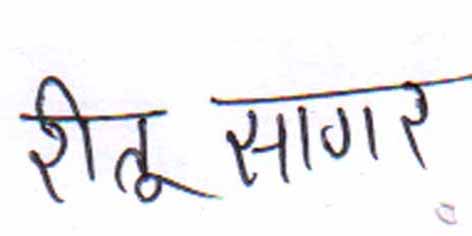 रीतू सागर